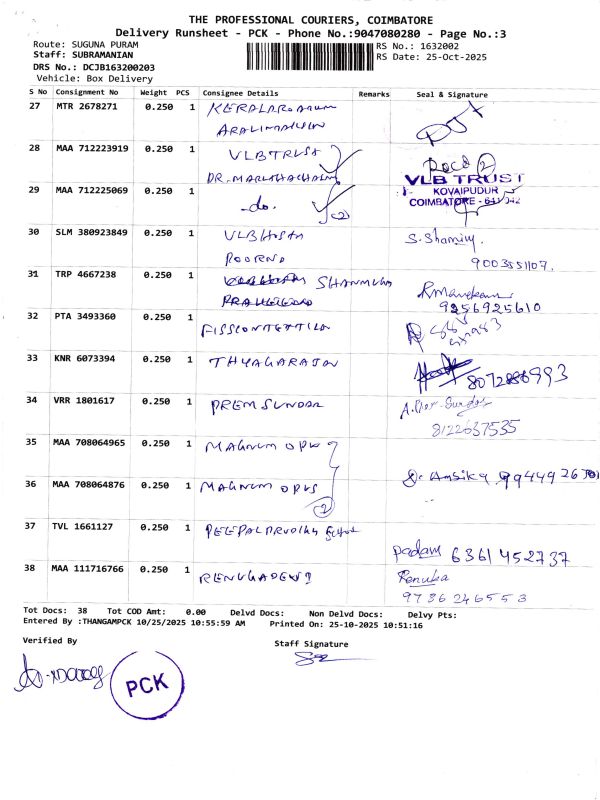 THE PROFESSIONAL COURIERS, COIMBATORE
Delivery Runsheet - PCK - Phone No.:9047080280 - Page No.:3
Route: SUGUNA PURAM
RS No.: 1632002
Staff: SUBRAMANIAN
RS Date: 25-Oct-2025
DRS No.: DCJB163200203
Vehicle: Box Delivery
S No Consignment No Weight PCS Consignee Details Remarks Seal & Signature
27 MTR 2678271 0.250 1
28 MAA 712223919 0.250 1 VLB TRUST
Recd 2
VLB TRUST
KOVAIPUDUR
29 MAA 712225069 0.250 1 -do- (2)
COIMBATORE - 641 042
30 SLM 380923849 0.250 1 VLB
S. Shamiy.
9003551107.
31 TRP 4667238 0.250 1 SHANMUGA
9256925610
32 PTA 3493360 0.250 1
33 KNR 6073394 0.250 1 THYAGARAJAN
34 VRR 1801617 0.250 1 PREM SUNDAR
8122637535
35 MAA 708064965 0.250 1 MAGNUM OPUS
36 MAA 708064876 0.250 1 MAGNUM OPUS
(2)
Ambika
37 TVL 1661127 0.250 1
Padam 6361452737
38 MAA 111716766 0.250 1 RENUGADEVI
Renuka
9736246553
Tot Docs: 38 Tot COD Amt: 0.00 Delvd Docs: Non Delvd Docs: Delvy Pts:
Entered By :THANGAMPCK 10/25/2025 10:55:59 AM Printed On: 25-10-2025 10:51:16
Verified By
Staff Signature
PCK